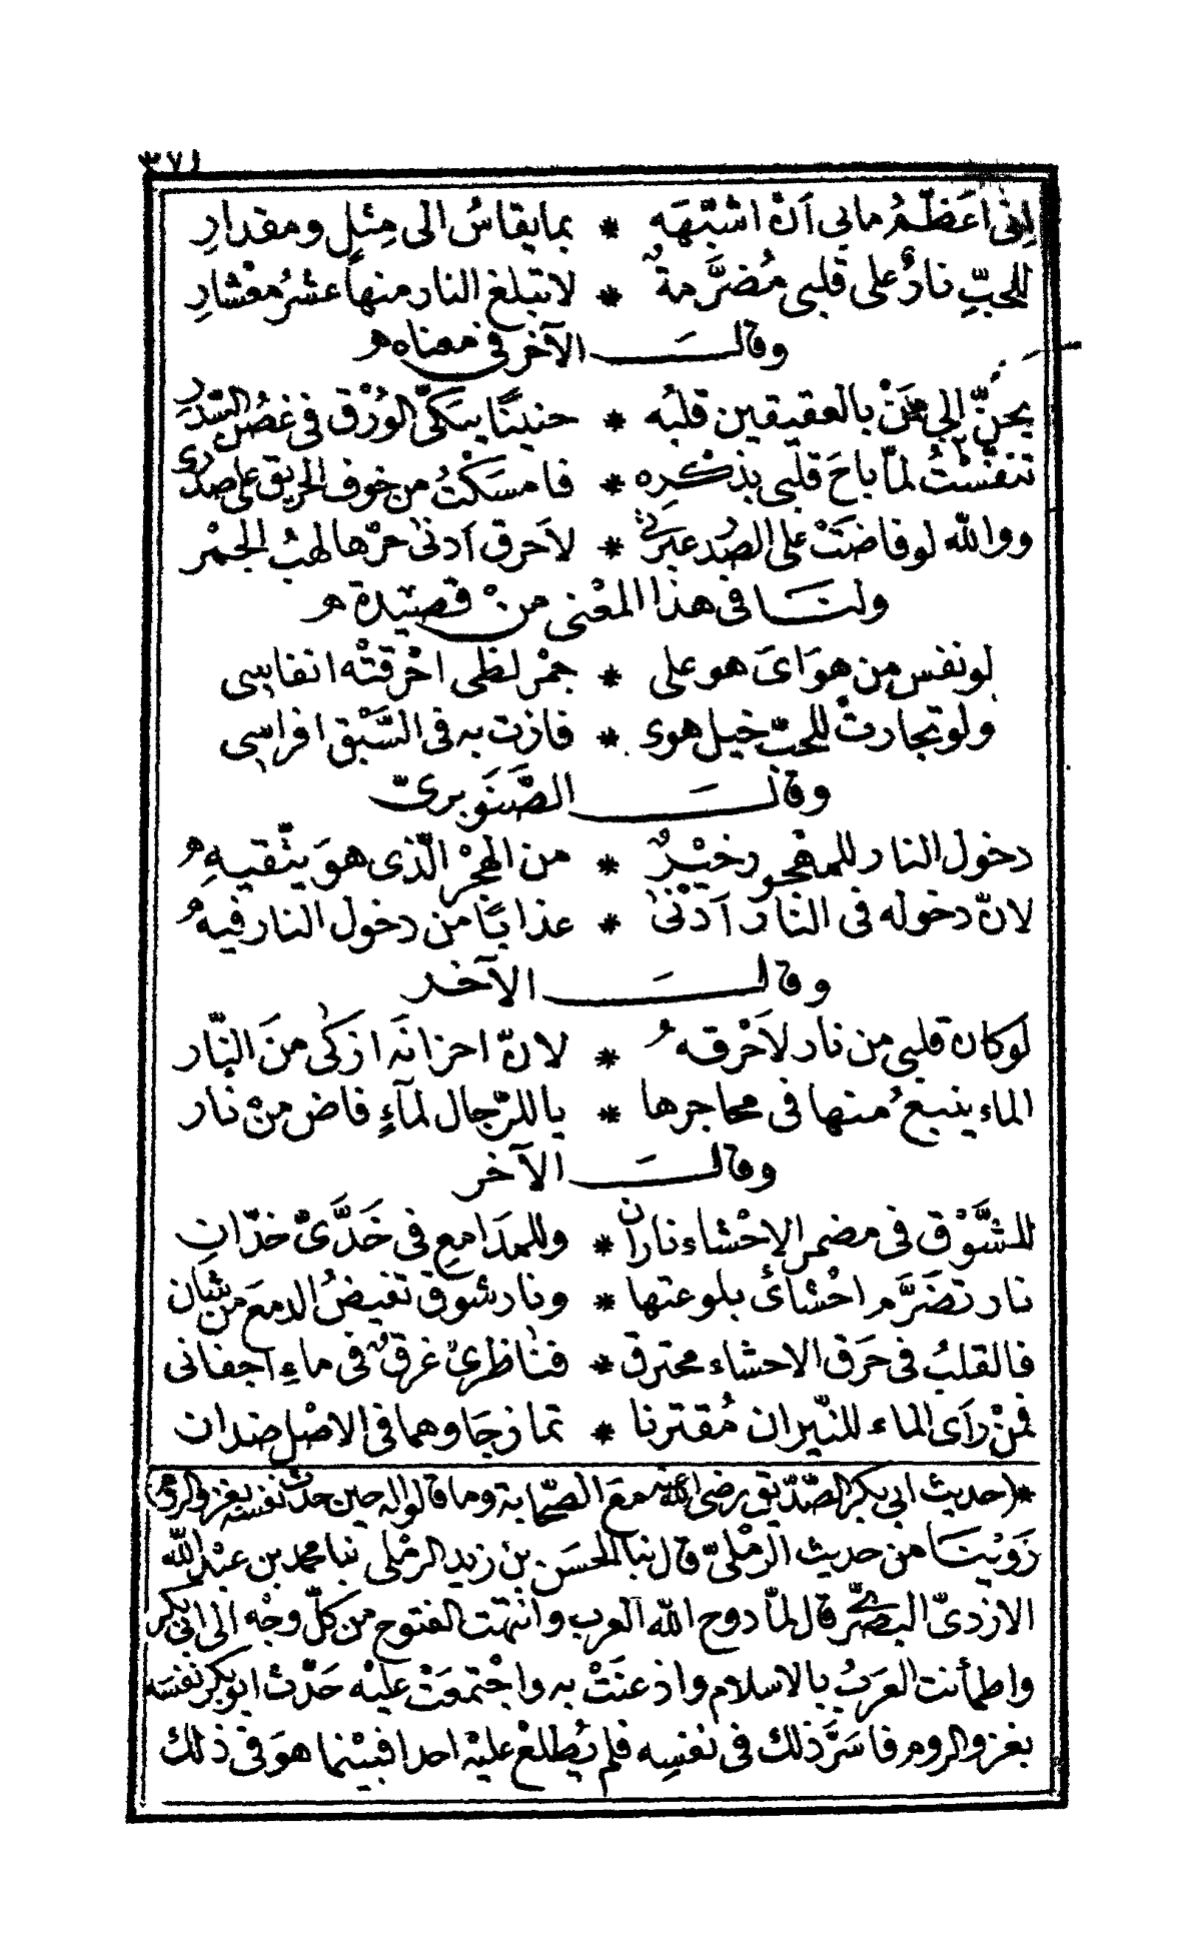 ٣٧١
إنى اعَظّمُ مابى اَنْ اشبّهَه * بما يقاسُ الى مِثلٍ ومقدارِ
للحبِّ نارٌ على قلبى مُضرَّمةٌ * لا تبلغ النار منها عشرُ معْشارِ
وقالَ الآخر فى معناه
يحنّ إلى مَنْ بالعقيقين قلبُه * حنينًا يبكّى الوُرْق فى غصُن السّدر
تنفّسْتُ لمّا باحَ قلبى بذكْرِه * فامسَكْتُ من خوف الحريق على صدرى
ووالله لو فاضَتْ على الصدر عبرتى * لاَحرق اَدنى حرّها لهبُ الجمْر
ولنَا فى هذا المعْنى منْ قصيْدة
لو نفس من هوَاىَ هو على * جمْر لظى احْرقتْه انفاسى
ولو تجارتْ للحبّ خيل هوى * فازت به فى السَّبْق افراسى
وقالَ الصَّنَوبرىّ
دخول النار للمهجور خيْرٌ * من الهجْر الّذى هوَ يتّقيهِ
لانّ دخوله فى النّار اَدْنىٰ * عذابًا من دخول النار فيه
وقالَ الآخر
لوكان قلبى من نار لاَحْرقه * لانّ احزانَه ازكٰى منَ النّار
الماء ينبعُ منها فى محاجرها * يا للرّجال لمآءٍ فاض منْ نار
وقالَ الآخر
للشَّوْق فى مضمر الاحْشاء ناران * وللمدَامعِ فى خَدَّىّ خدّانِ
نار تضَرَّم احْشائى بلوعتها * ونار شوق تفيضُ الدمعَ من شان
فالقلبُ فى حَرَق الاحشاء محترق * فنٰاظرىْ غرقٌ فى ماءِ اجفانى
فمنْ رَاَى الماء للنّيران مُقترنا * تمازجَا وهما فى الاصْل ضدان
*(حديث ابى بكر الصّدّيق رضى الله عنه معَ الصّحابة وما قالوا له حين حدّث نفسه بغزو الروم)
رَوَيْنَا من حديث الرمْلىّ قال نبا الحسَن بن زيد الرمْلى نبا محمد بن عبْد الله
الازدىّ البصْرىّ قال لمّا دوح الله العرب وانتهت الفتوح من كلّ وجْه الى ابى بكر
واطمأنت العَرَبُ بالاسلام واذعنَتْ به واجْتمعَتْ عليْه حَدّث ابو بكر نفسَه
بغزو الروم فاسَرَّ ذلك فى نفسِه فلم يُطلعْ عليْه احدا فبيْنما هوَ فى ذلك